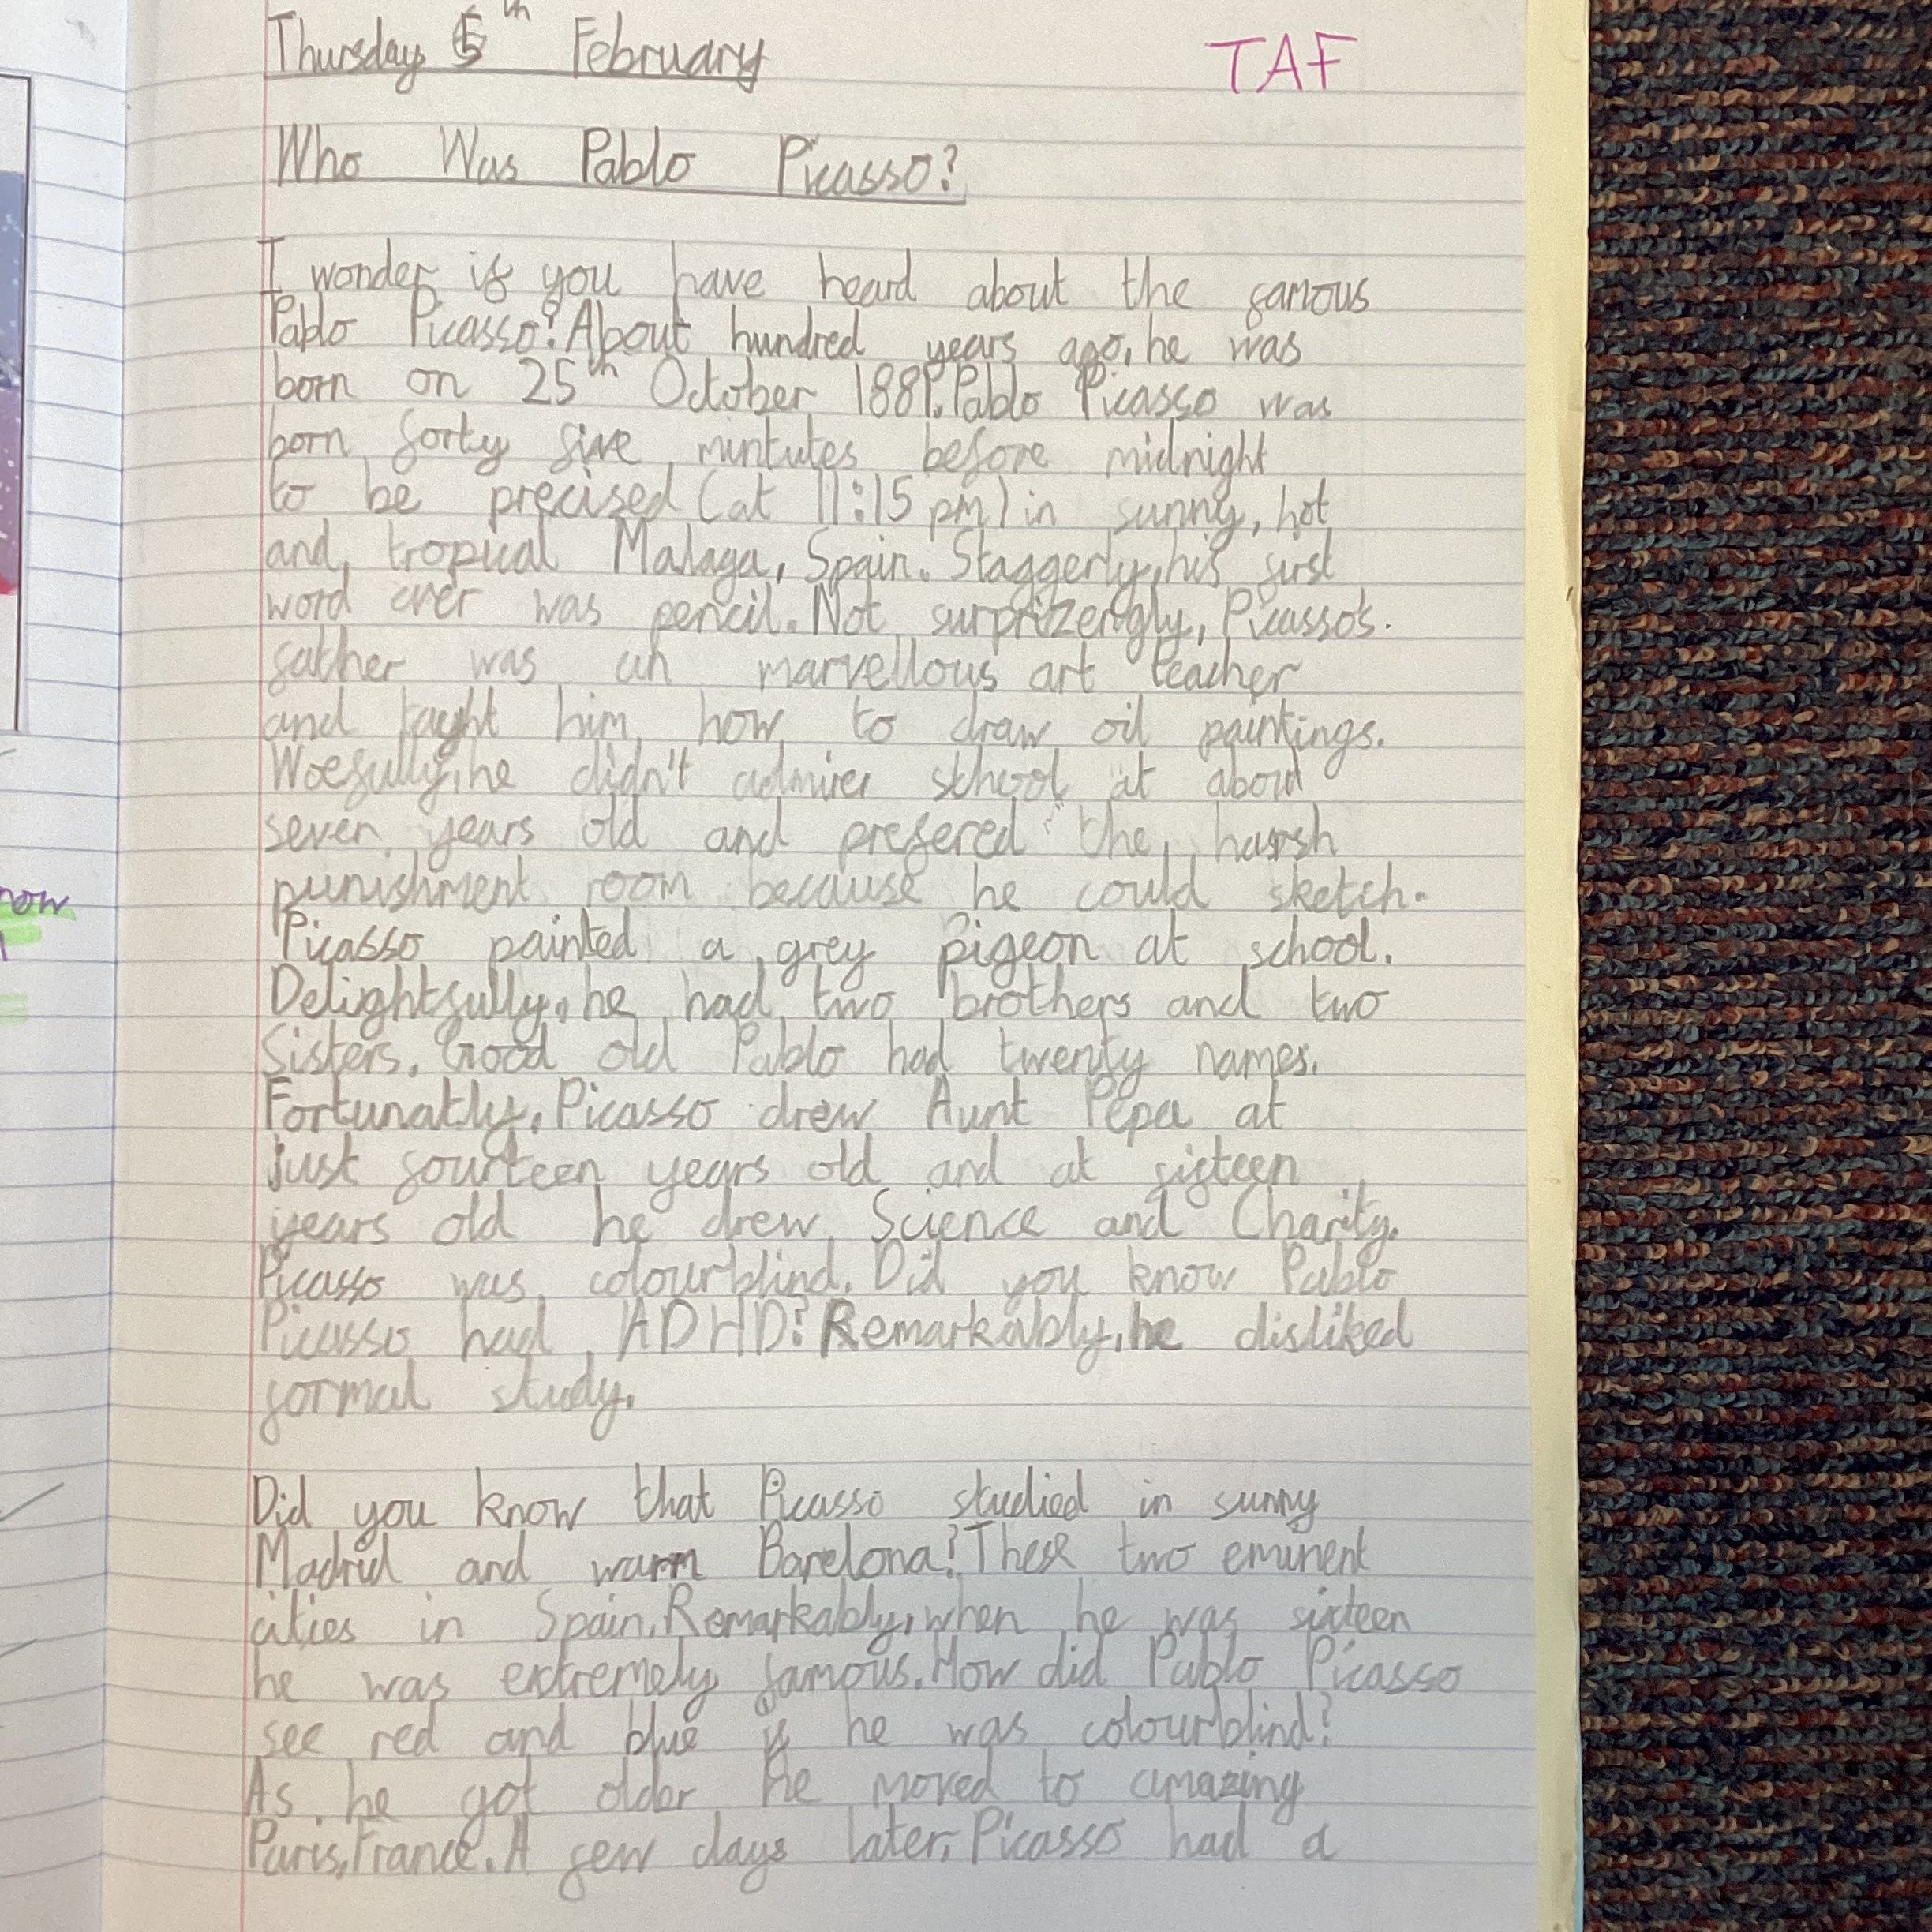 Thursday 5th February
TAF
Who Was Pablo Picasso?
I wonder if you have heard about the famous
Pablo Picasso? About hundred years ago, he was
born on 25th October 1881. Pablo Picasso was
born forty five mintutes before midnight
to be precised (at 11:15 pm) in sunny, hot
and tropical Malaga, Spain. Staggerly, his first
word ever was pencil. Not surprizengly, Picasso's
father was an marvellous art teacher
and taght him how to draw oil paintings.
Woefully, he didn't admirer school at about
seven years old and prefered the harsh
punishment room because he could sketch.
Picasso painted a grey pigeon at school.
Delightfully, he had two brothers and two
Sisters. Good old Pablo had twenty names.
Fortunatly, Picasso drew Aunt Pepa at
just fourteen years old and at sixteen
years old he drew Science and Charity.
Picasso was colourblind. Did you know Pablo
Picasso had ADHD? Remarkably, he disliked
formal study.
Did you know that Picasso studied in sunny
Madrid and warm Barelona? These two eminent
cities in Spain. Remarkably, when he was sixteen
he was extremely famous. How did Pablo Picasso
see red and blue if he was colourblind?
As he got older he moved to amazing
Paris, France. A few days later, Picasso had a
now